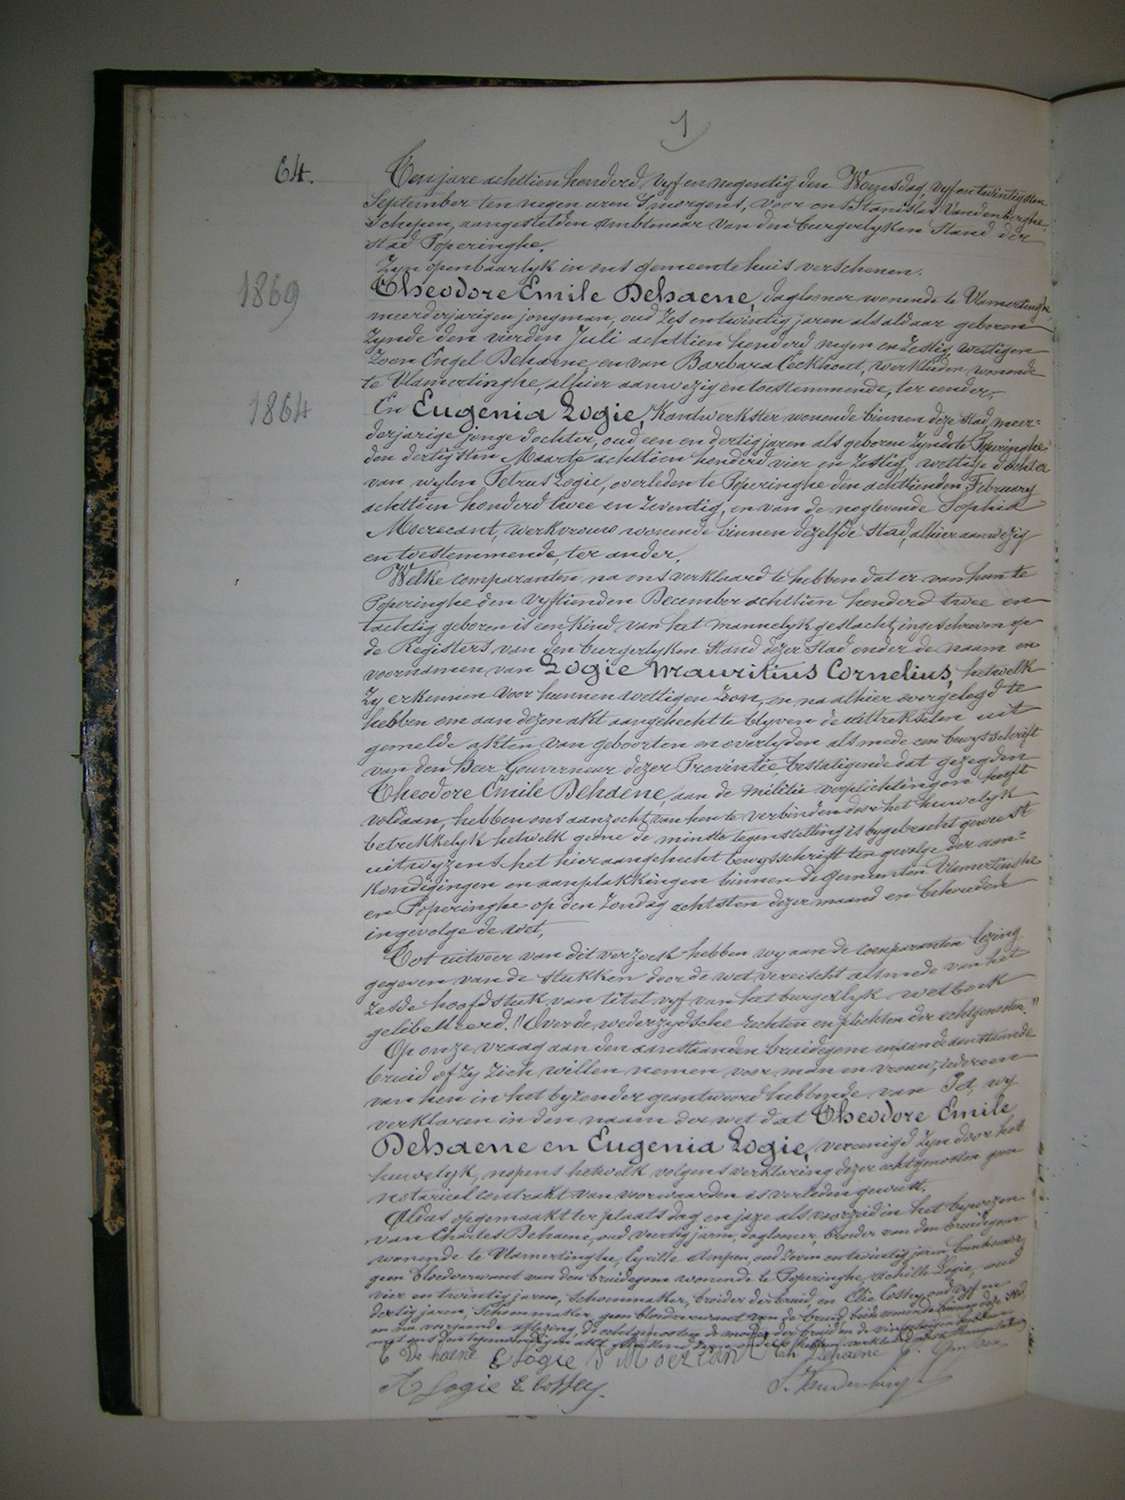 1
64.
Ten jare achttien honderd vyf en negentig den Woensdag vyf en twintigsten
September ten negen uren 's morgens, voor ons Stanislas Vandenberghe,
Schepen, aangestelden Ambtenaar van den burgerlyken Stand der
stad Poperinghe.
Zyn openbaarlyk in ons gemeentehuis verschenen.
1869
Theodore Emile Dehaene, daglooner wonende te Vlamertinghe,
meerderjarigen jongman, oud zes en twintig jaren als aldaar geboren
zynde den vierden Juli achttien honderd negen en zestig, wettigen
zoon Engel Dehaene, en van Barbara Eeckhout, werklieden wonende
te Vlamertinghe, alhier aanwezig en toestemmende, ter eender,-
1864
En Eugenia Logie, Kantwerkster wonende binnen deze stad, meer=
derjarige jonge dochter, oud een en dertig jaren als geboren zynde te Poperinghe
den dertigsten Maarte achttien honderd vier en zestig, wettige dochter
van wylen Petrus Logie, overleden te Poperinghe den achttienden February
achttien honderd twee en zeventig, en van de noglevende Sophia
Moerecant, werkvrouw wonende binnen dezelfde Stad, alhier aanwezig
en toestemmende, ter ander.
Welke comparanten, na ons verklaard te hebben dat er van hun te
Poperinghe den vyftienden December achttien honderd twee en
tachtig geboren is een kind van het mannelyk geslacht, ingeschreven op
de Registers van den burgerlyken Stand dezer Stad onder de naam en
voornamen van Logie Mauritius Cornelius, hetwelk
zy erkennen voor hunnen wettigen zoon, en na alhier voorgelegd te
hebben om aan dezen akt aangehecht te blyven de uittrekselen uit
gemelde akten van geboorten en overlyden alsmede een bewysschrift
van den Heer Gouverneur dezer Provintie, bestatigende dat gezegden
Theodore Emile Dehaene, aan de militie verplichtingen heeft
voldaan, hebben ons aanzocht van hen te verbinden door het huwelyk
betrekkelyk hetwelk geene de minste tegenstelling is bygebracht geweest
uitwyzens het hier aangehecht bewysschrift ten gevolge der aan=
kondigingen en aanplakkingen binnen de Gemeenten Vlamertinghe
en Poperinghe op den Zondag achtsten dezer maand en behouden
ingevolge de wet,
Tot uitvoer van dit verzoek hebben wy aan de comparanten lezing
gegeven van de stukken door de wet vereischt alsmede van het
zesde hoofdstuk van titel vyf van het burgerlyk wetboek
gelibelleerd. "Over de wederzydsche rechten en plichten der echtgenooten."
Op onze vraag aan den aanstaanden bruidegom en aan de aanstaande
bruid of zy zich willen nemen voor man en vrouw, iedereen
van hen in het byzonder geantwoord hebbende van Ja, wy
verklaren in den naam der wet dat Theodore Emile
Dehaene en Eugenia Logie, vereenigd zyn door het
huwelyk, nopens hetwelk volgens verklaring dezer echtgenooten geen
notarieel contrakt van voorwaarden is verleden geweest.
Aldus opgemaakt ter plaats dag en jare als voorzeid in het bywezen
van Charles Dehaene, oud veertig jaren, daglooner, broeder van den bruidegom
wonende te Vlamertinghe, Cyrille Ampen, oud zeven en twintig jaren,
geen bloedverwant van den bruidegom wonende te Poperinghe, Achille Logie, oud
vier en twintig jaren, schoenmaker, broeder der bruid, en Elie Cossey, oud vyf en
dertig jaren, Schoenmaker, geen bloedverwant van de bruid beide wonende binnen deze stad,
en na voorgaande aflezing, de echtgenooten, de moeder der bruid en de vier getuigen hebben
met ons den tegenwoordigen akt geteekend
E De haene E Logie S Moercant Ch Dehaene C. Ampen
A Logie E Cossey. S. Vandenberghe